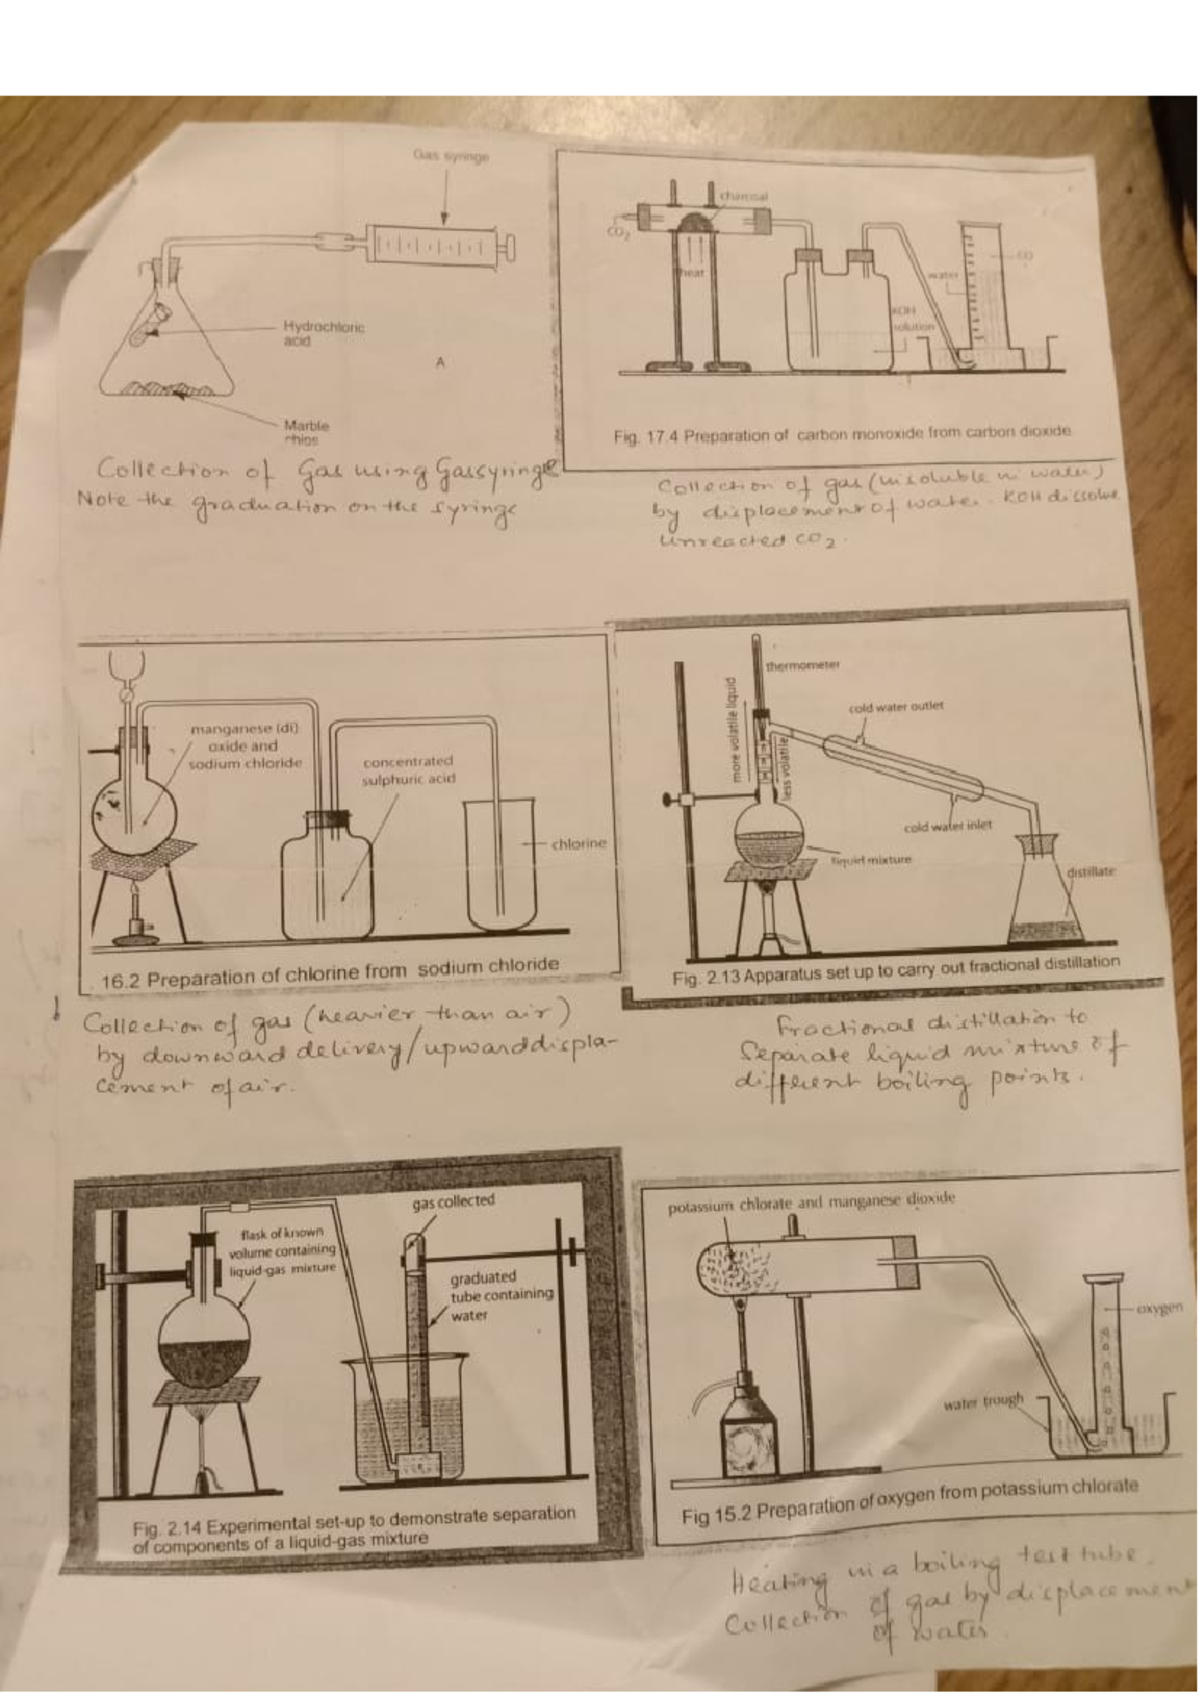 Gas syringe
Hydrochloric
acid
A
Marble
chips
Collection of Gas using Gassyringe
Note the graduation on the syringe
charcoal
CO2
heat
water
CO
KOH
solution
Fig. 17.4 Preparation of carbon monoxide from carbon dioxide
Collection of gas (insoluble in water)
by displacement of water. KOH dissolve
unreacted CO2.
manganese (di)
oxide and
sodium chloride
concentrated
sulphuric acid
chlorine
16.2 Preparation of chlorine from sodium chloride
Collection of gas (heavier than air)
by downward delivery/upward displa-
cement of air.
thermometer
more volatile liquid
less volatile
cold water outlet
cold water inlet
liquid mixture
distillate
Fig. 2.13 Apparatus set up to carry out fractional distillation
Fractional distillation to
Separate liquid mixture of
different boiling points.
flask of known
volume containing
liquid-gas mixture
gas collected
graduated
tube containing
water
Fig. 2.14 Experimental set-up to demonstrate separation
of components of a liquid-gas mixture
potassium chlorate and manganese dioxide
oxygen
water trough
Fig 15.2 Preparation of oxygen from potassium chlorate
Heating in a boiling test tube.
Collection of gas by displacement
of water.